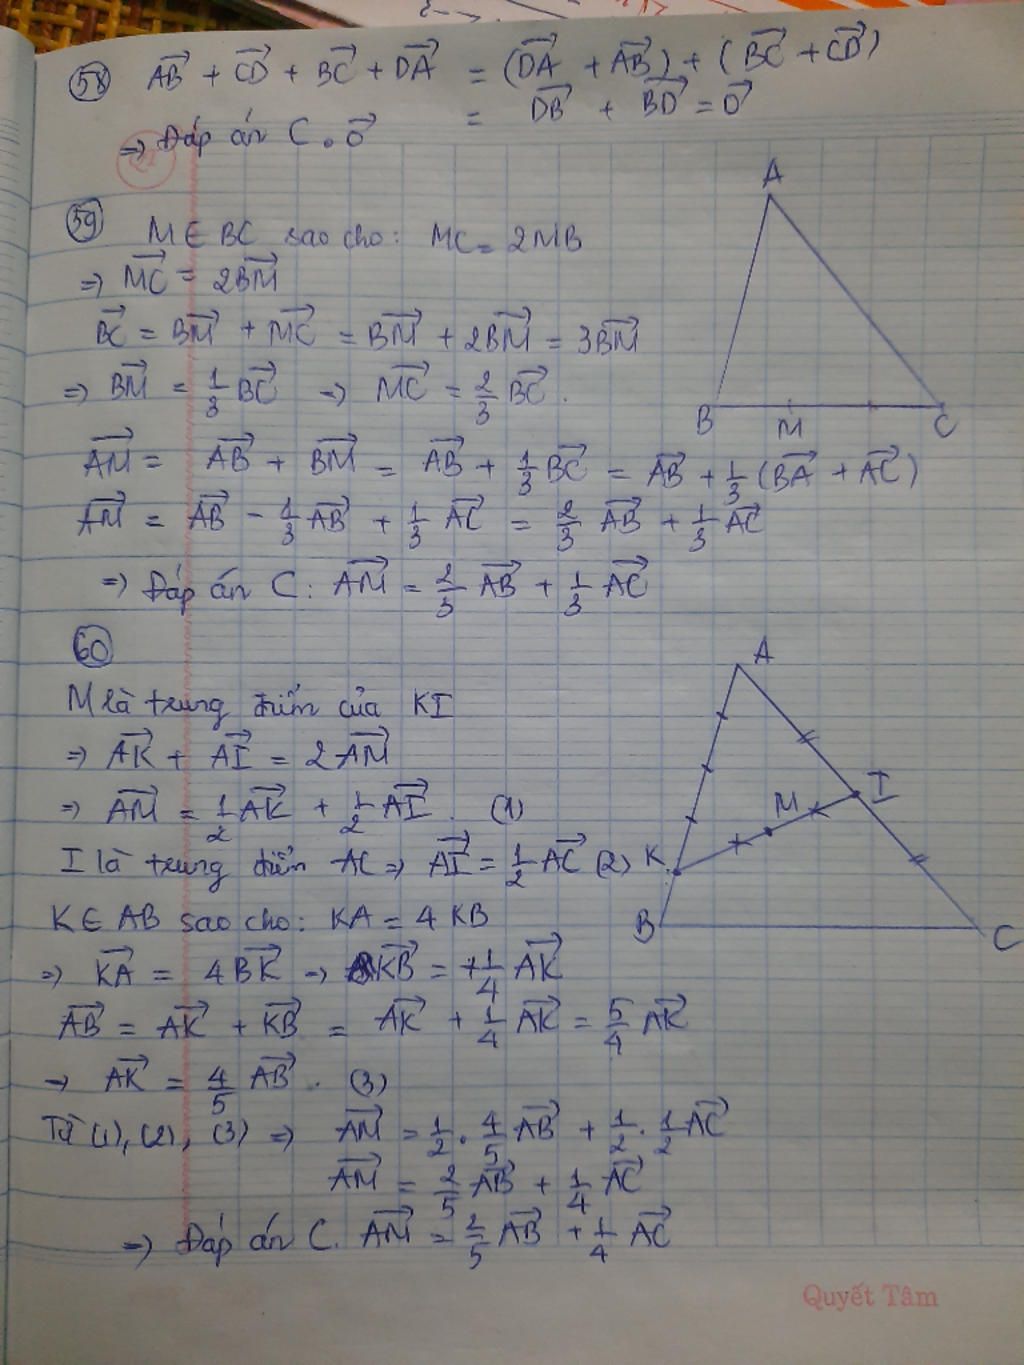 58 $\overrightarrow{AB} + \overrightarrow{CD} + \overrightarrow{BC} + \overrightarrow{DA} = (\overrightarrow{DA} + \overrightarrow{AB}) + (\overrightarrow{BC} + \overrightarrow{CD})$
$= \overrightarrow{DB} + \overrightarrow{BD} = \overrightarrow{0}$
⇒ Đáp án C. $\overrightarrow{0}$
A
59 M ∈ BC sao cho: MC = 2MB
⇒ $\overrightarrow{MC} = 2\overrightarrow{BM}$
$\overrightarrow{BC} = \overrightarrow{BM} + \overrightarrow{MC} = \overrightarrow{BM} + 2\overrightarrow{BM} = 3\overrightarrow{BM}$
⇒ $\overrightarrow{BM} = \frac{1}{3}\overrightarrow{BC}$ ⇒ $\overrightarrow{MC} = \frac{2}{3}\overrightarrow{BC}$.
B M C
$\overrightarrow{AM} = \overrightarrow{AB} + \overrightarrow{BM} = \overrightarrow{AB} + \frac{1}{3}\overrightarrow{BC} = \overrightarrow{AB} + \frac{1}{3}(\overrightarrow{BA} + \overrightarrow{AC})$
$\overrightarrow{AM} = \overrightarrow{AB} - \frac{1}{3}\overrightarrow{AB} + \frac{1}{3}\overrightarrow{AC} = \frac{2}{3}\overrightarrow{AB} + \frac{1}{3}\overrightarrow{AC}$
⇒ Đáp án C: $\overrightarrow{AM} = \frac{2}{3}\overrightarrow{AB} + \frac{1}{3}\overrightarrow{AC}$
60
A
M là trung điểm của KI
⇒ $\overrightarrow{AK} + \overrightarrow{AI} = 2\overrightarrow{AM}$
⇒ $\overrightarrow{AM} = \frac{1}{2}\overrightarrow{AK} + \frac{1}{2}\overrightarrow{AI}$. (1)
M I
I là trung điểm AC ⇒ $\overrightarrow{AI} = \frac{1}{2}\overrightarrow{AC}$ (2)
K
K ∈ AB sao cho: KA = 4KB
B C
⇒ $\overrightarrow{KA} = 4\overrightarrow{BK}$ ⇒ $\overrightarrow{KB} = +\frac{1}{4}\overrightarrow{AK}$
$\overrightarrow{AB} = \overrightarrow{AK} + \overrightarrow{KB} = \overrightarrow{AK} + \frac{1}{4}\overrightarrow{AK} = \frac{5}{4}\overrightarrow{AK}$
⇒ $\overrightarrow{AK} = \frac{4}{5}\overrightarrow{AB}$. (3)
Từ (1), (2), (3) ⇒ $\overrightarrow{AM} = \frac{1}{2}.\frac{4}{5}\overrightarrow{AB} + \frac{1}{2}.\frac{1}{2}\overrightarrow{AC}$
$\overrightarrow{AM} = \frac{2}{5}\overrightarrow{AB} + \frac{1}{4}\overrightarrow{AC}$
⇒ Đáp án C. $\overrightarrow{AM} = \frac{2}{5}\overrightarrow{AB} + \frac{1}{4}\overrightarrow{AC}$
Quyết Tâm